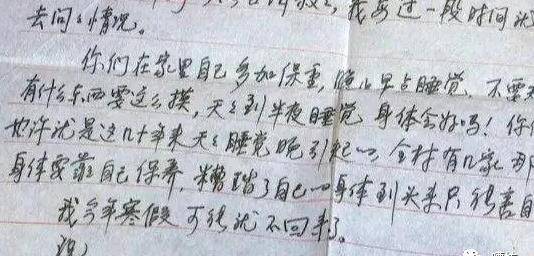 我再过一段时间就
去问问情况。
你们在家里自己多加保重，晚上早点睡觉，不要
有什么东西要这么摸，天天到半夜睡觉 身体会好吗！你
也许就是这几十年来天天睡觉晚引起的，全村有几家
身体要靠自己保养，糟蹋了自己的身体到头来只能害自
我今年寒假可能就不回来了。
祝